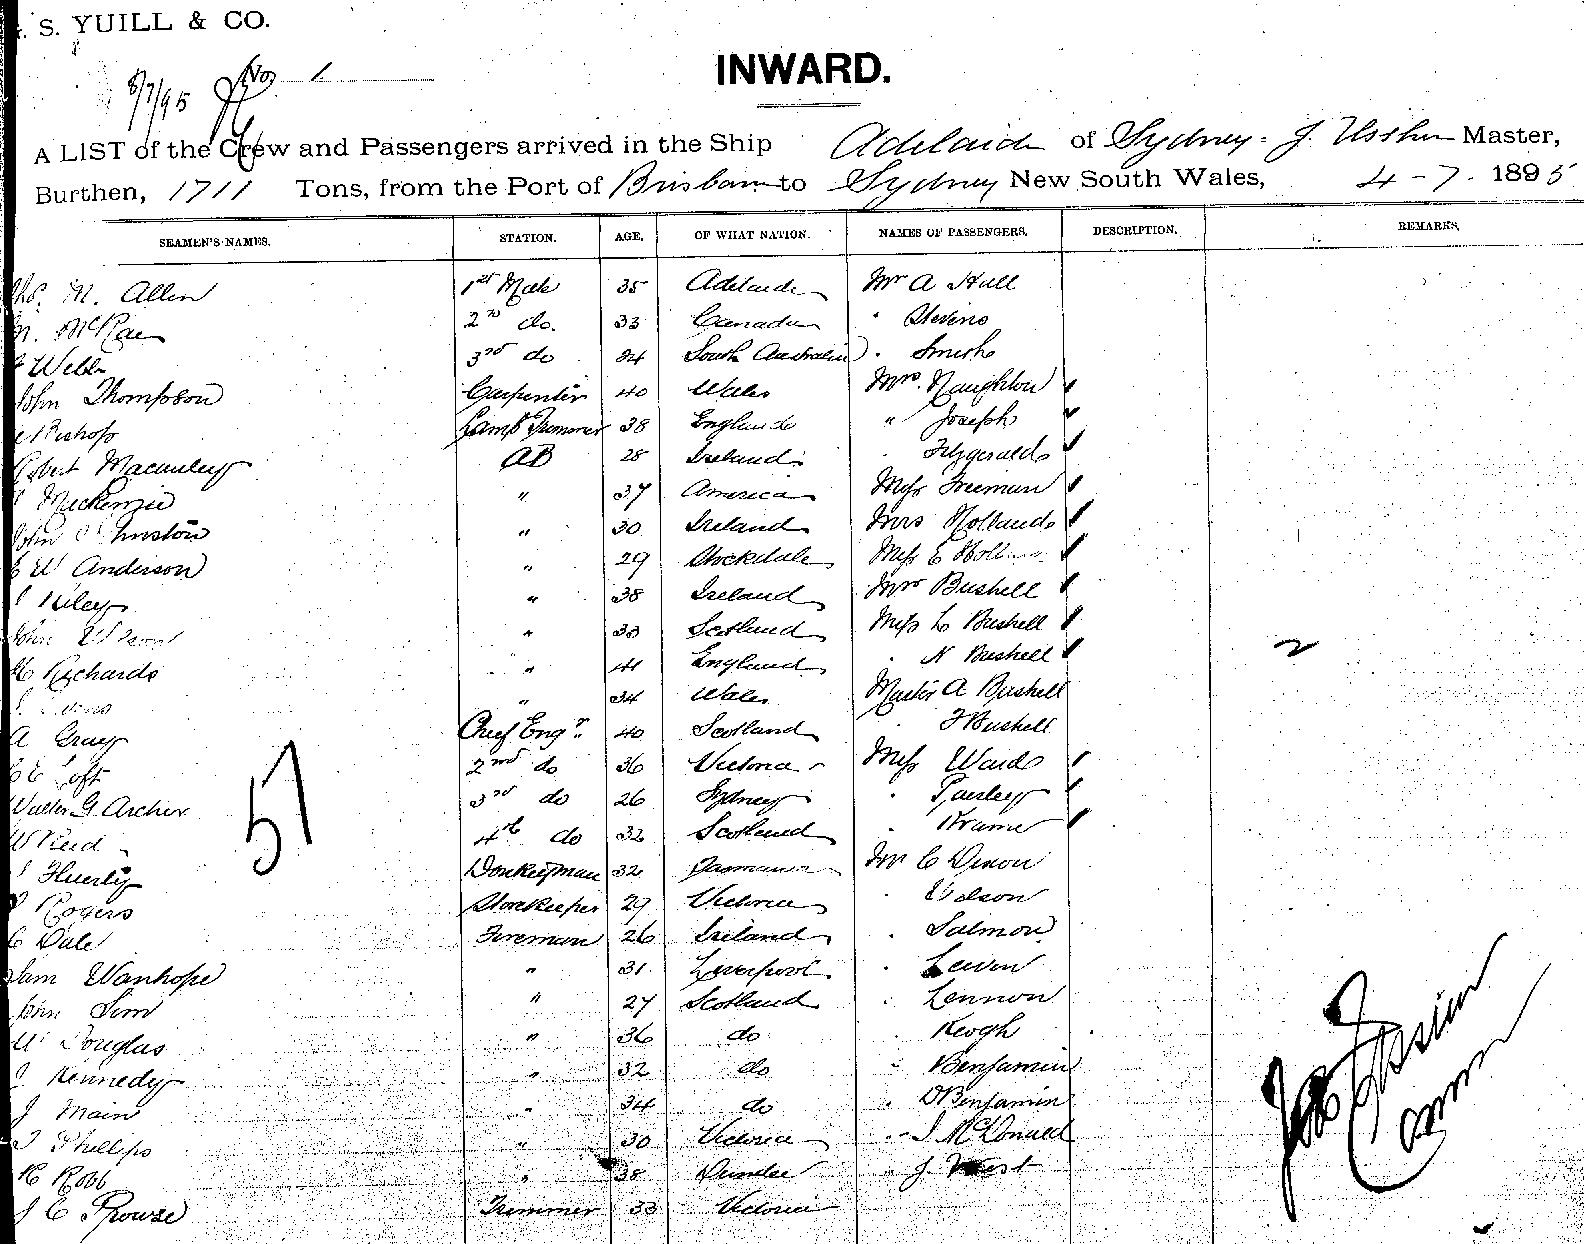 . S. YUILL & CO.
8/7/95 No 1
INWARD.
A LIST of the Crew and Passengers arrived in the Ship Adelaide of Sydney - J. Ussher Master,
Burthen, 1711 Tons, from the Port of Brisbane to Sydney New South Wales, 4-7- 1895
SEAMEN'S NAMES. STATION. AGE. OF WHAT NATION. NAMES OF PASSENGERS. DESCRIPTION. REMARKS.
M. Allen 1st Mate 35 Adelaide Mr A Hull
McRae 2nd do. 33 Canada " Stevens
Webb 3rd do 24 South Australia " Smith
John Thompson Carpenter 40 Wales Mrs. Naughton
Bishop Lamp Trimmer 38 England " Joseph
Robert Macauley AB 28 Ireland Fitzgerald
McKenzie " 37 America Miss Freeman
John Johnston " 30 Ireland Mrs Holland
W Anderson " 29 Miss E
Riley " 38 Ireland Mrs Bushell
John Wilson " 33 Scotland Miss L Bushell
Richards " 41 England " N Bushell
" 34 Wales Master A Bushell
A Gray Chief Engr. 40 Scotland " F Bushell
2nd do 36 Victoria Miss Ward
Walter G. Archer 3rd do 26 Sydney
W Reid 4th do 32 Scotland
Donkeyman 32 Tasmania Mr C Dixon
Rogers Storekeeper 29 Victoria
C Dale Fireman 26 Ireland " Salmon
Sam Wanhope " 31 Liverpool
John Sim " 27 Scotland " Lennon
W Douglas " 36 do " Keogh
Kennedy " 32 do " Benjamin
J Main " 34 do " D Benjamin
Phillips " 30 Victoria " J McDonald
R Robb " 38 Dundee " J. West
J C Prowse Trimmer 33 Victoria
57